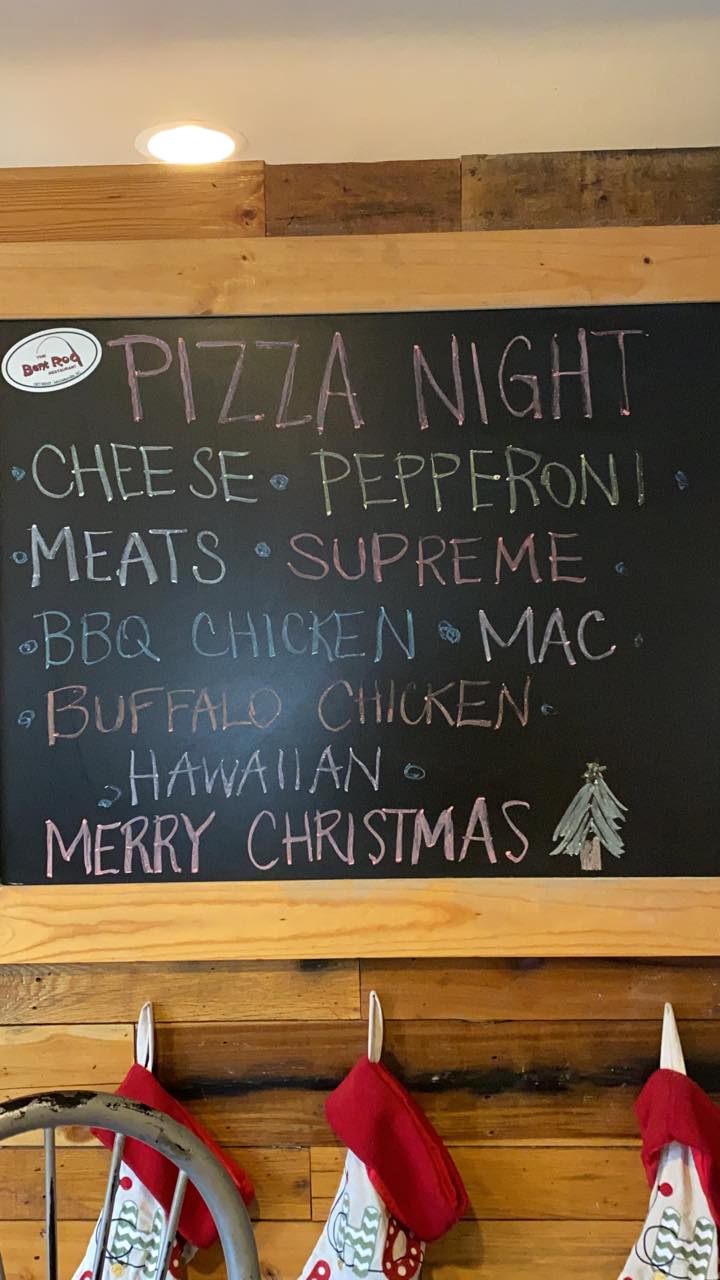 THE
Bent Rod
RESTAURANT
PIZZA NIGHT
CHEESE • PEPPERONI •
• MEATS • SUPREME •
• BBQ CHICKEN • MAC •
• BUFFALO CHICKEN •
• HAWAIIAN •
MERRY CHRISTMAS